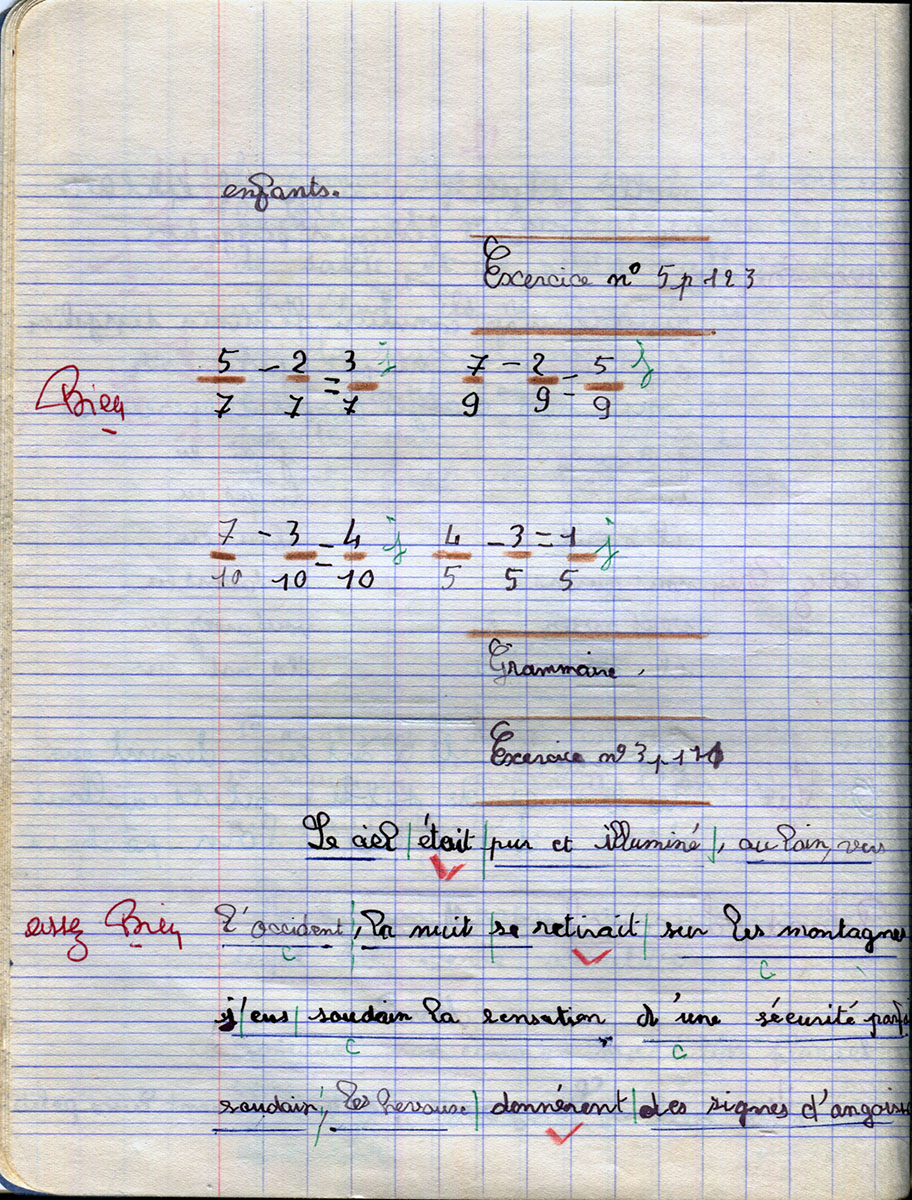 enfants.
Exercice n° 5 p 123
5/7 - 2/7 = 3/7 j 7/9 - 2/9 = 5/9 j
Bien
7/10 - 3/10 = 4/10 j 4/5 - 3/5 = 1/5 j
Grammaire.
Exercice n° 3 p 171
Le ciel | était | pur et illuminé |, au loin, vers
assez Bien l'occident |, la nuit | se retirait | sur les montagnes
C C
j'eus | soudain la sensation d'une sécurité parf
C C
soudain, | les | donnérent | des signes d'angoiss